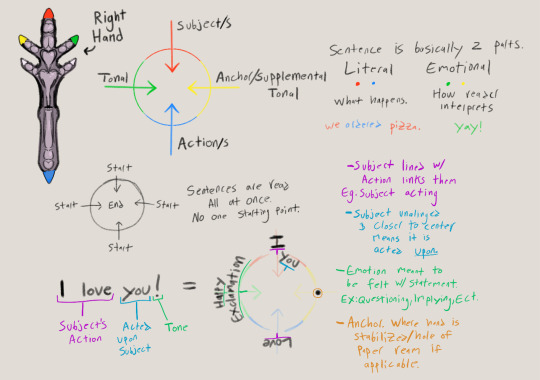 Right
Hand
Subject/s
Tonal
Anchor/Supplemental
Tonal
Action/s
Sentence is basically 2 parts.
Literal
Emotional
What happens.
How reader
interprets
we ordered pizza.
yay!
Start
Start
End
Start
Start
Sentences are read
All at once.
No one starting point.
-Subject lined w/
Action links them
Eg. Subject acting
-Subject unaligned
& closer to center
means it is
acted upon
-Emotion meant to
be felt w/ statement
Ex: Questioning, Implying, Ect.
-Anchor. Where hand is
stabilized/hole of
Paper ream if
applicable.
I love you!
=
Subject's
Action
Acted
upon
Subject
Tone
I
You
Happy
Exclamation
Love